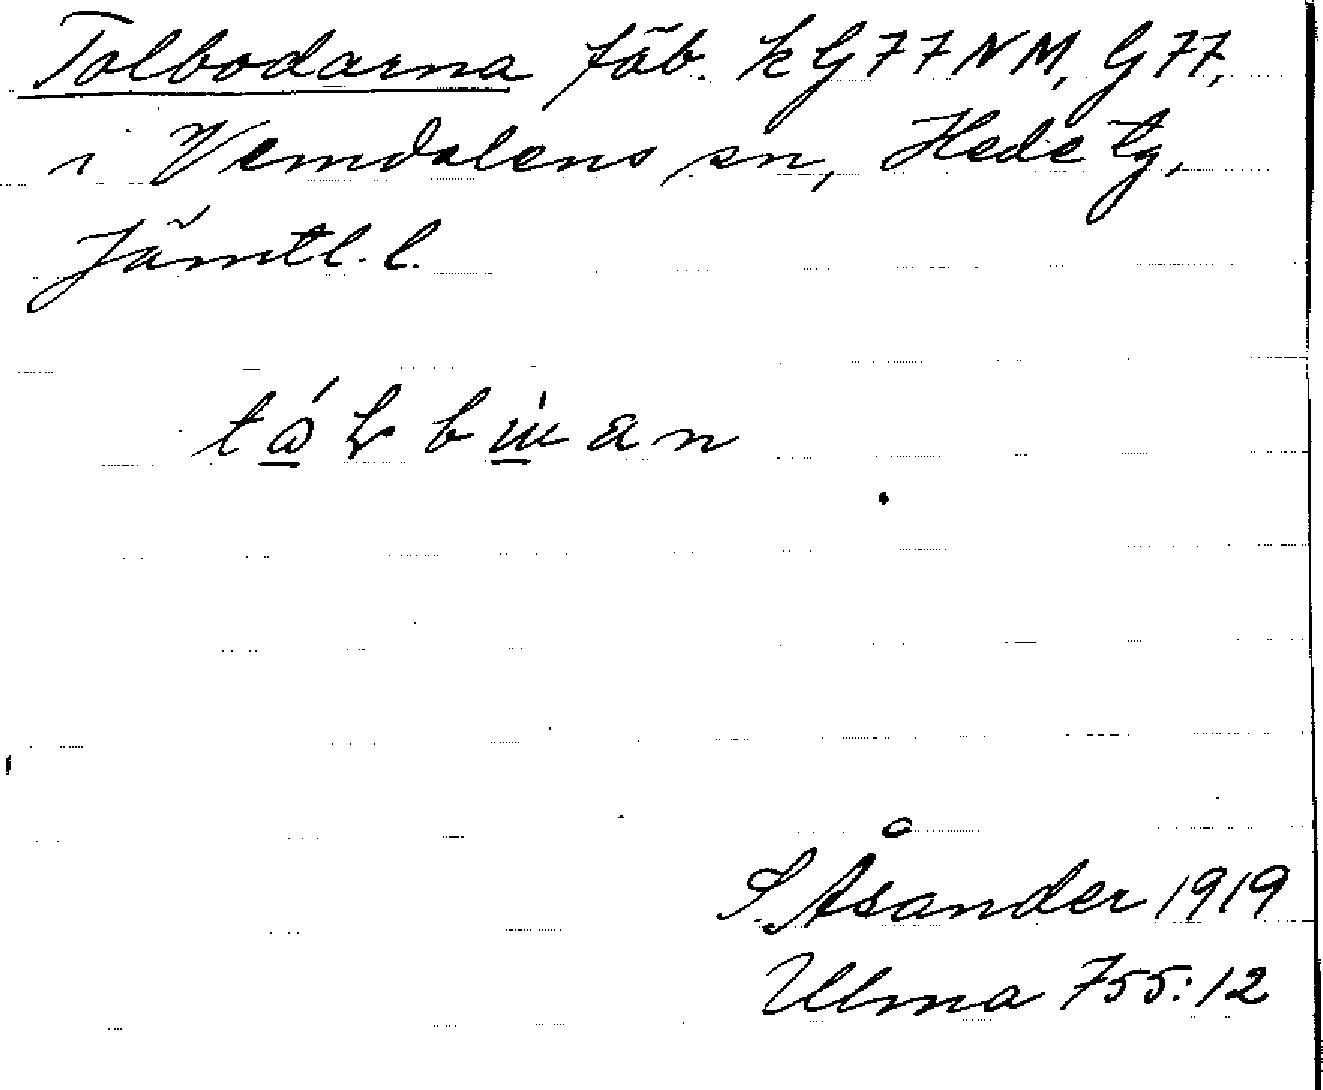 Tolbodarna fäb. k G 77 NM, G 77,
i Vemdalens sn, Hede tg,
Jämtl. l.
S. Åsander 1919
Ulma 755:12